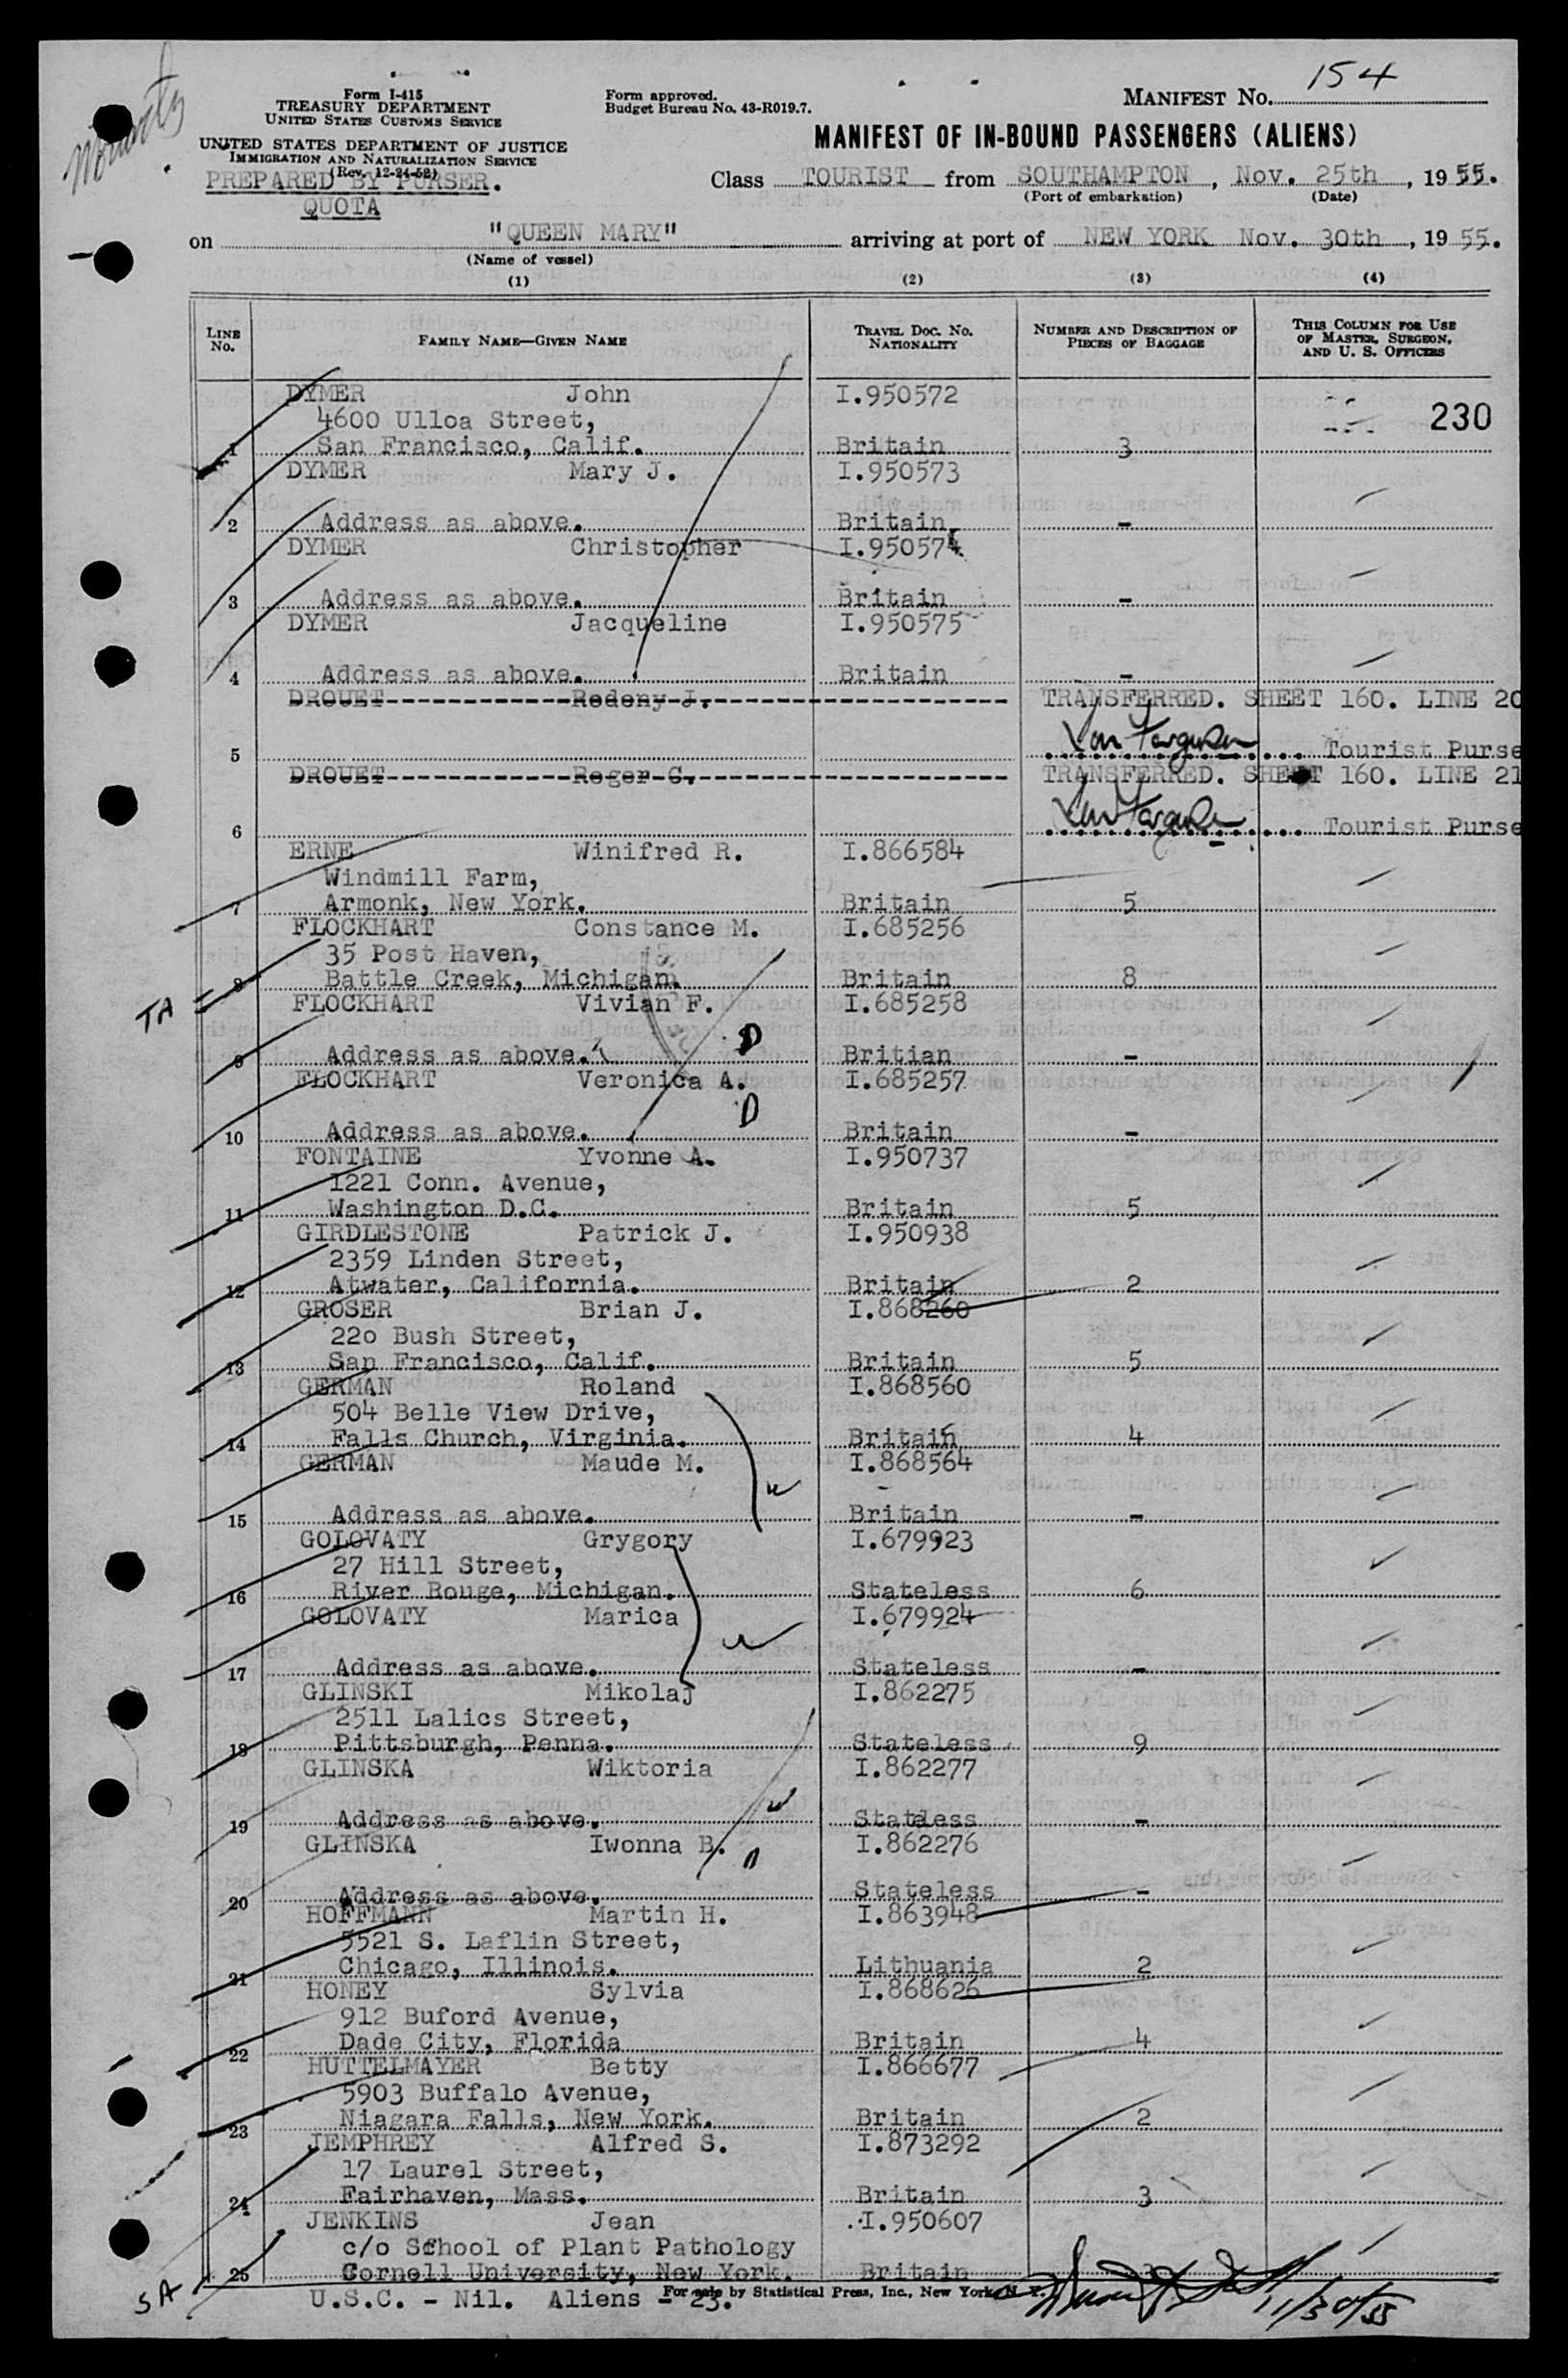 154
Form I-415
TREASURY DEPARTMENT
UNITED STATES CUSTOMS SERVICE
UNITED STATES DEPARTMENT OF JUSTICE
IMMIGRATION AND NATURALIZATION SERVICE
(Rev. 12-24-52)
PREPARED BY PURSER.
QUOTA
Form approved.
Budget Bureau No. 43-R019.7.
MANIFEST No.
MANIFEST OF IN-BOUND PASSENGERS (ALIENS)
Class TOURIST from SOUTHAMPTON, Nov. 25th, 1955.
(Port of embarkation) (Date)
on "QUEEN MARY" arriving at port of NEW YORK Nov. 30th, 1955.
(Name of vessel)
(1) (2) (3) (4)
LINE No. FAMILY NAME—GIVEN NAME TRAVEL DOC. No. NATIONALITY NUMBER AND DESCRIPTION OF PIECES OF BAGGAGE THIS COLUMN FOR USE OF MASTER, SURGEON, AND U. S. OFFICERS
DYMER John I.950572
4600 Ulloa Street, 230
1 San Francisco, Calif. Britain 3
DYMER Mary J. I.950573
2 Address as above. Britain -
DYMER Christopher I.950574
3 Address as above. Britain -
DYMER Jacqueline I.950575
4 Address as above. Britain -
DROUET Redeny J. TRANSFERRED. SHEET 160. LINE 20
5 Tourist Purse
DROUET Roger C. TRANSFERRED. SHEET 160. LINE 21
6 Tourist Purse
ERNE Winifred R. I.866584
Windmill Farm,
7 Armonk, New York. Britain 5
FLOCKHART Constance M. I.685256
35 Post Haven,
8 Battle Creek, Michigan. Britain 8
TA
FLOCKHART Vivian F. I.685258
D
9 Address as above. Britian -
FLOCKHART Veronica A. I.685257
D
10 Address as above. Britain -
FONTAINE Yvonne A. I.950737
1221 Conn. Avenue,
11 Washington D.C. Britain 5
GIRDLESTONE Patrick J. I.950938
2359 Linden Street,
12 Atwater, California. Britain 2
GROSER Brian J. I.868260
22o Bush Street,
13 San Francisco, Calif. Britain 5
GERMAN Roland I.868560
504 Belle View Drive,
14 Falls Church, Virginia. Britain 4
GERMAN Maude M. I.868564
15 Address as above. Britain -
GOLOVATY Grygory I.679923
27 Hill Street,
16 River Rouge, Michigan. Stateless 6
GOLOVATY Marica I.679924
17 Address as above. Stateless -
GLINSKI Mikolaj I.862275
2511 Lalics Street,
18 Pittsburgh, Penna. Stateless 9
GLINSKA Wiktoria I.862277
19 Address as above. Stateless -
GLINSKA Iwonna B. I.862276
20 Address as above. Stateless -
HOFFMANN Martin H. I.863948
5521 S. Laflin Street,
21 Chicago, Illinois. Lithuania 2
HONEY Sylvia I.868626
912 Buford Avenue,
22 Dade City, Florida Britain 4
HUTTELMAYER Betty I.866677
5903 Buffalo Avenue,
23 Niagara Falls, New York. Britain 2
JEMPHREY Alfred S. I.873292
17 Laurel Street,
24 Fairhaven, Mass. Britain 3
JENKINS Jean I.950607
c/o School of Plant Pathology
25 Cornell University, New York. Britain 3
SA
U.S.C. - Nil. Aliens - 23. For sale by Statistical Press, Inc., New York, N. Y.
11/30/55